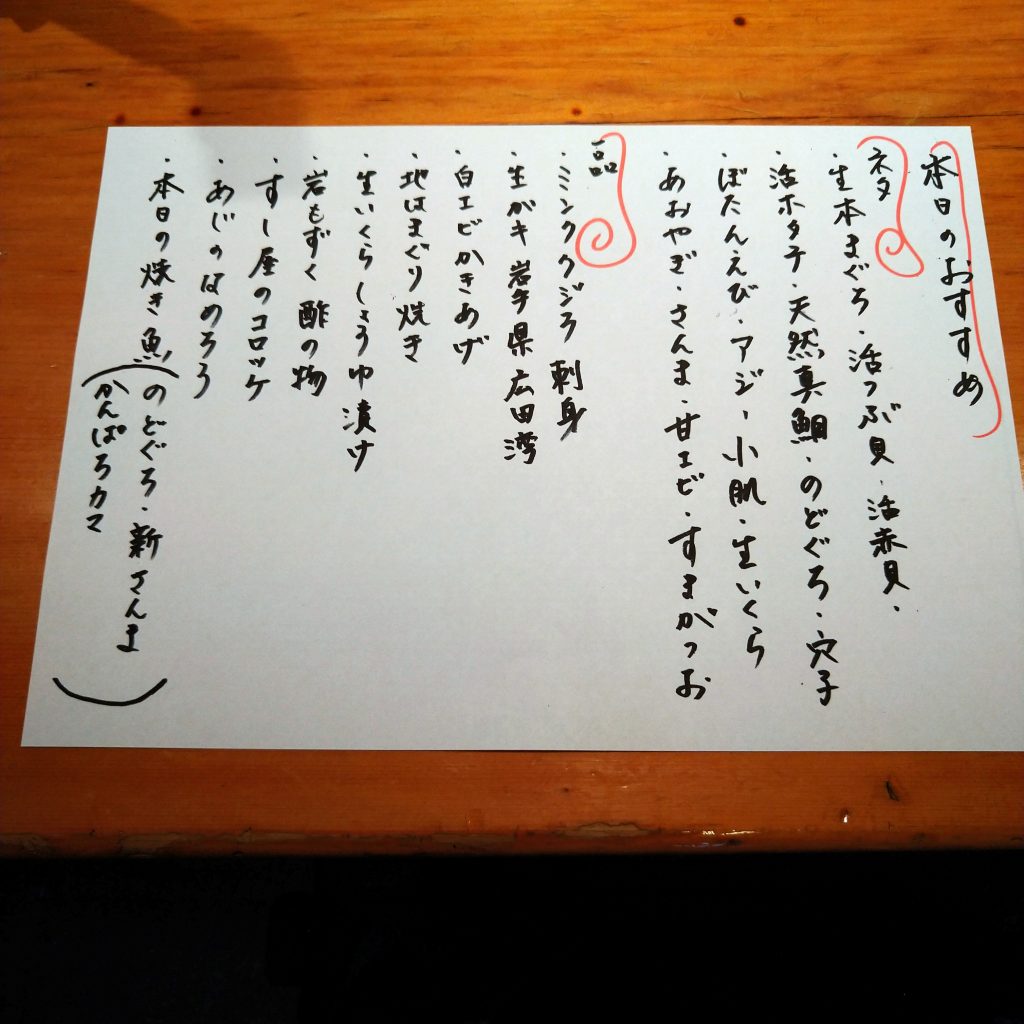 本日のおすすめ
ネタ
・生本まぐろ・活つぶ貝・活赤貝・
・活ホタテ・天然真鯛・のどぐろ・穴子
・ぼたんえび・アジ・小肌・生いくら
・あおやぎ・さんま・甘エビ・すまがつお
一品
・ミンククジラ 刺身
・生ガキ 岩手県広田湾
・白エビかきあげ
・地はまぐり焼き
・生いくらしょうゆ漬け
・岩もずく酢の物
・すし屋のコロッケ
・あじのなめろう
・本日の焼き魚(のどぐろ・新さんま
かんぱちカマ)